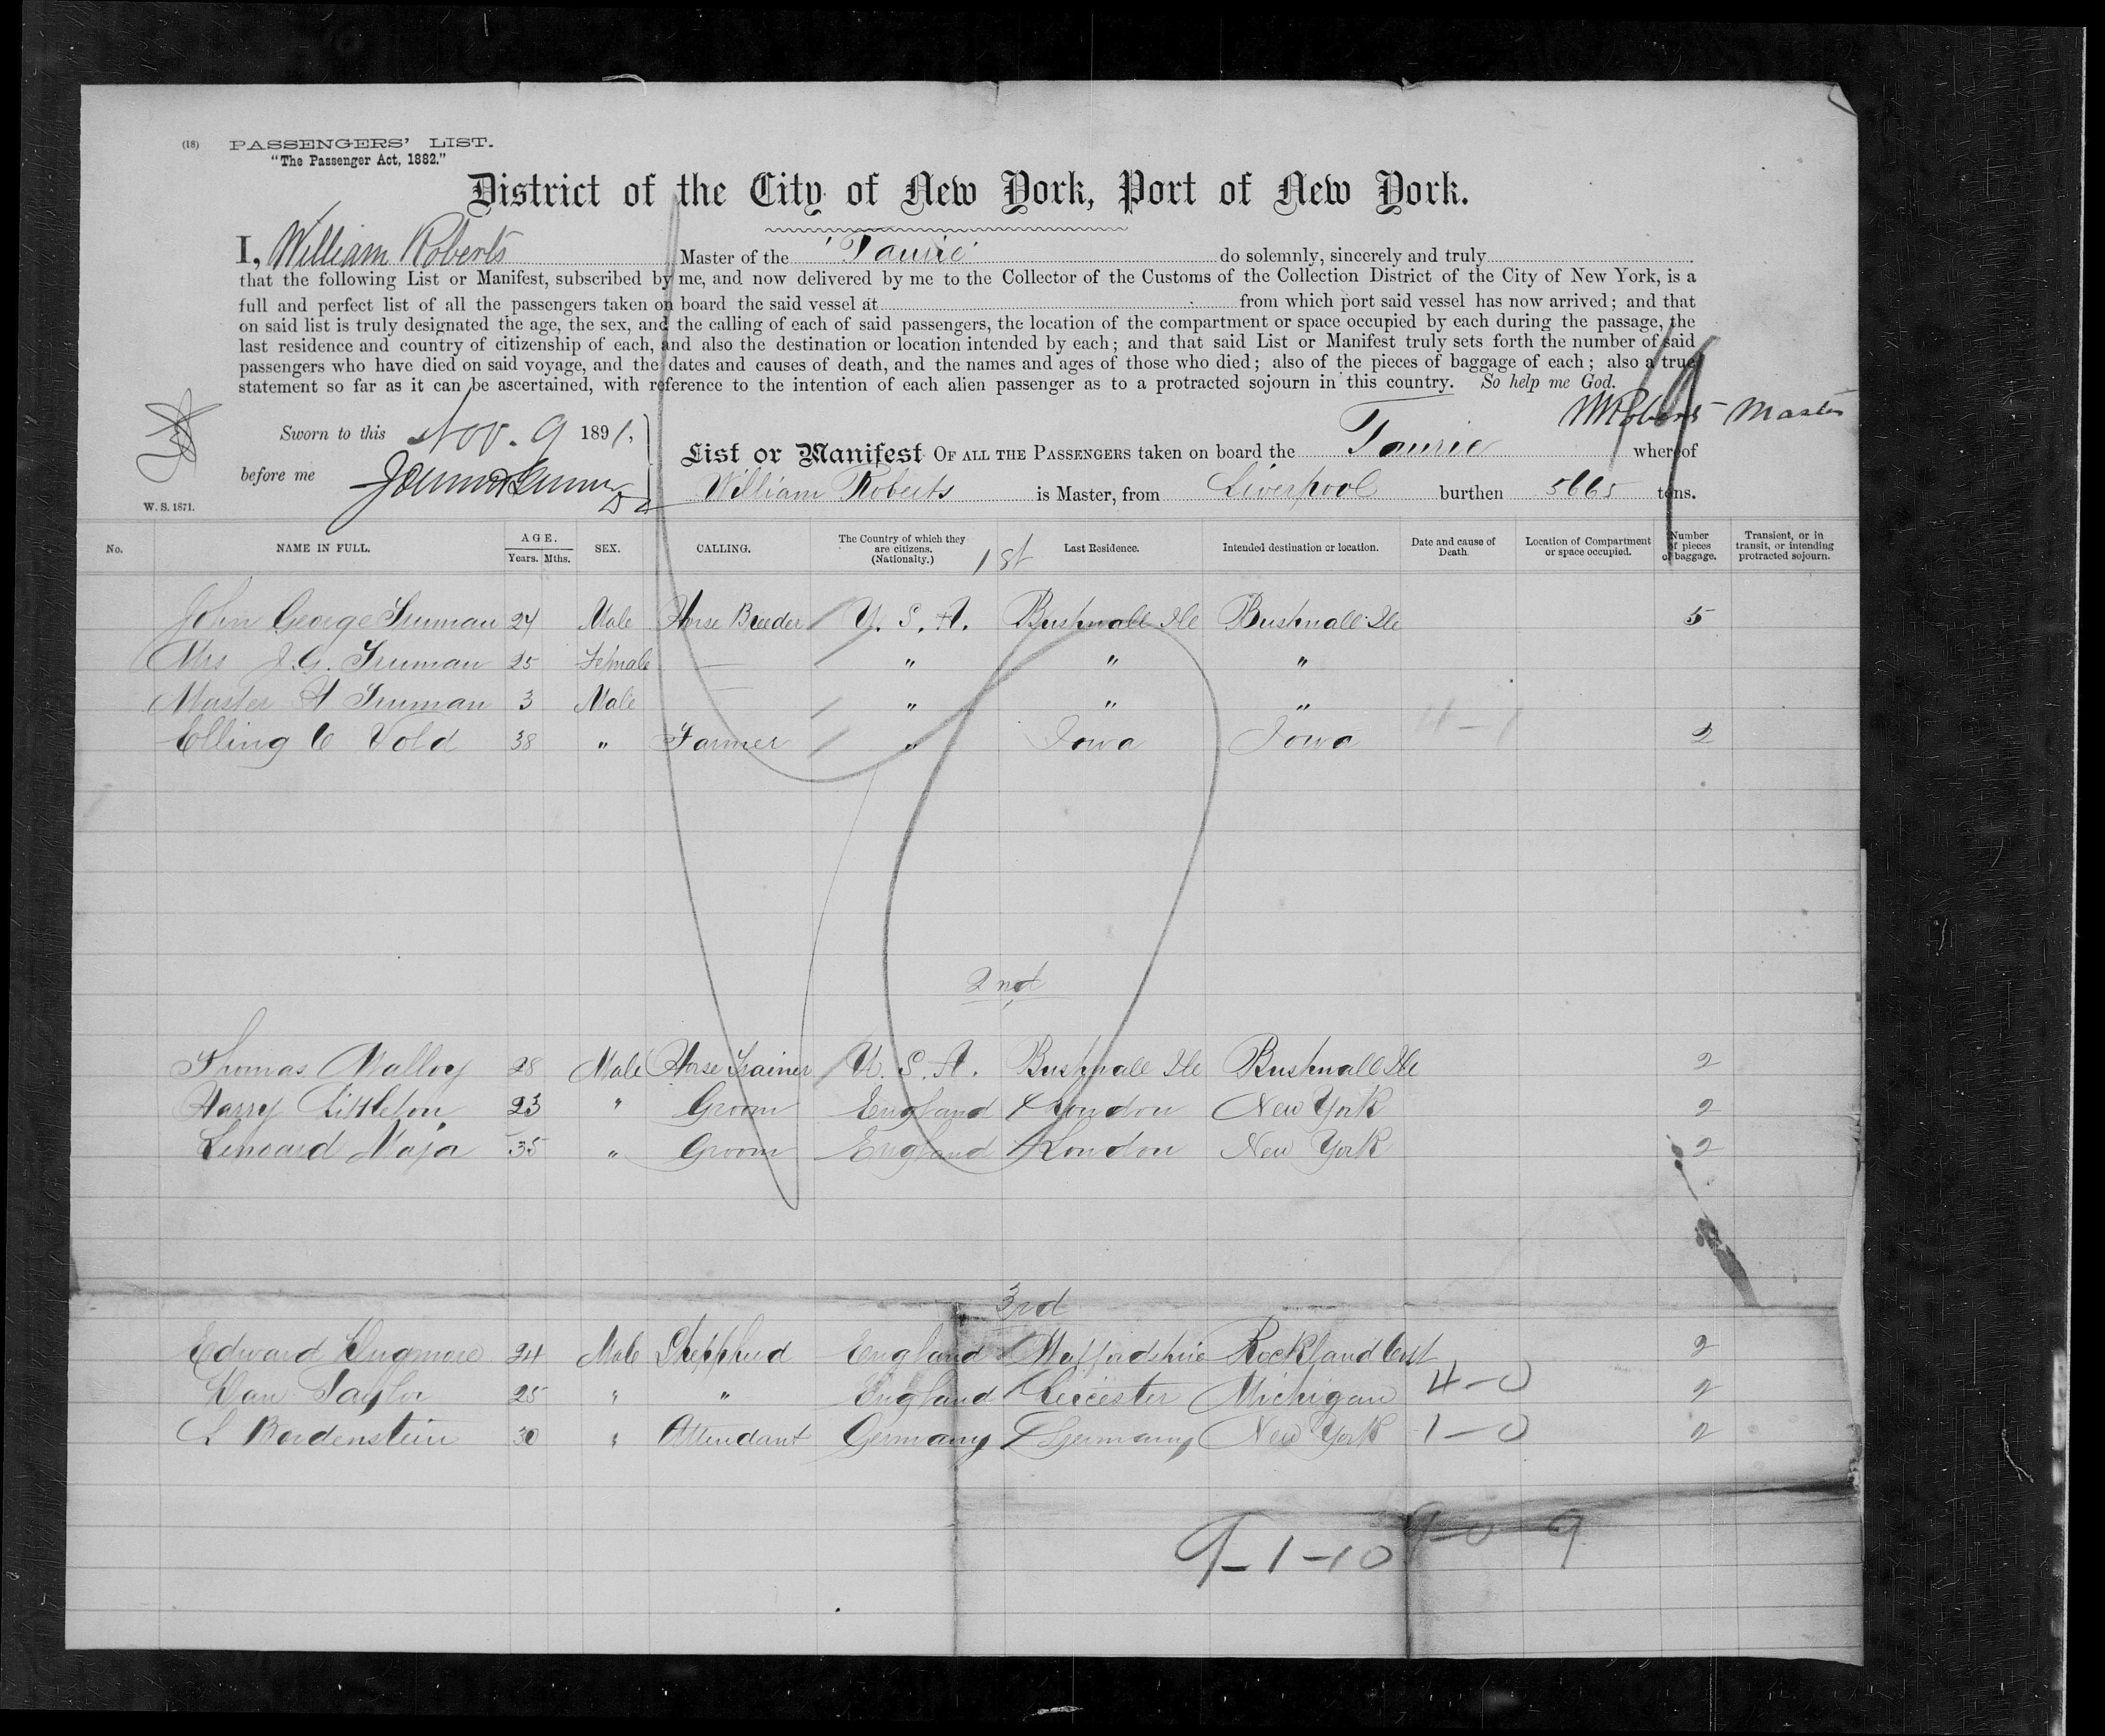 (18) PASSENGERS' LIST.
"The Passenger Act, 1882."
District of the City of New York, Port of New York.
I, William Roberts Master of the "Tauric" do solemnly, sincerely and truly
that the following List or Manifest, subscribed by me, and now delivered by me to the Collector of the Customs of the Collection District of the City of New York, is a
full and perfect list of all the passengers taken on board the said vessel at from which port said vessel has now arrived; and that
on said list is truly designated the age, the sex, and the calling of each of said passengers, the location of the compartment or space occupied by each during the passage, the
last residence and country of citizenship of each, and also the destination or location intended by each; and that said List or Manifest truly sets forth the number of said
passengers who have died on said voyage, and the dates and causes of death, and the names and ages of those who died; also of the pieces of baggage of each; also a true
statement so far as it can be ascertained, with reference to the intention of each alien passenger as to a protracted sojourn in this country. So help me God.
W Roberts Master
Sworn to this Nov. 9 1891,
before me
List or Manifest OF ALL THE PASSENGERS taken on board the Tauric whereof
William Roberts is Master, from Liverpool burthen 5665 tons.
W. S. 1871.
No. NAME IN FULL. AGE. Years. Mths. SEX. CALLING. The Country of which they are citizens. (Nationalty.) Last Residence. Intended destination or location. Date and cause of Death. Location of Compartment or space occupied. Number of pieces of baggage. Transient, or in transit, or intending protracted sojourn.
1st
John George Truman 24 Male Horse Breeder U. S. A. Bushnall Ile Bushnall Ile 5
Mrs J. G. Truman 25 Female — " " "
Master A Truman 3 Male — " " "
Elling C Vold 38 " Farmer " Iowa Iowa 4-1 2
2nd
Thomas Malloy 28 Male Horse Trainer U. S. A. Bushnall Ile Bushnall Ile 2
Harry Littleton 23 " Groom England London New York 2
Lenoard Major 35 " Groom England London New York 2
3rd
Edward Dugmore 24 Male Shepphed England Staffordshire Rockland 2
Dan Taylor 25 " " England Leicester Michigan 4-0 2
L Bordenstein 30 " Attendant Germany Germany New York 1-0 2
9-1-10 9-0 9